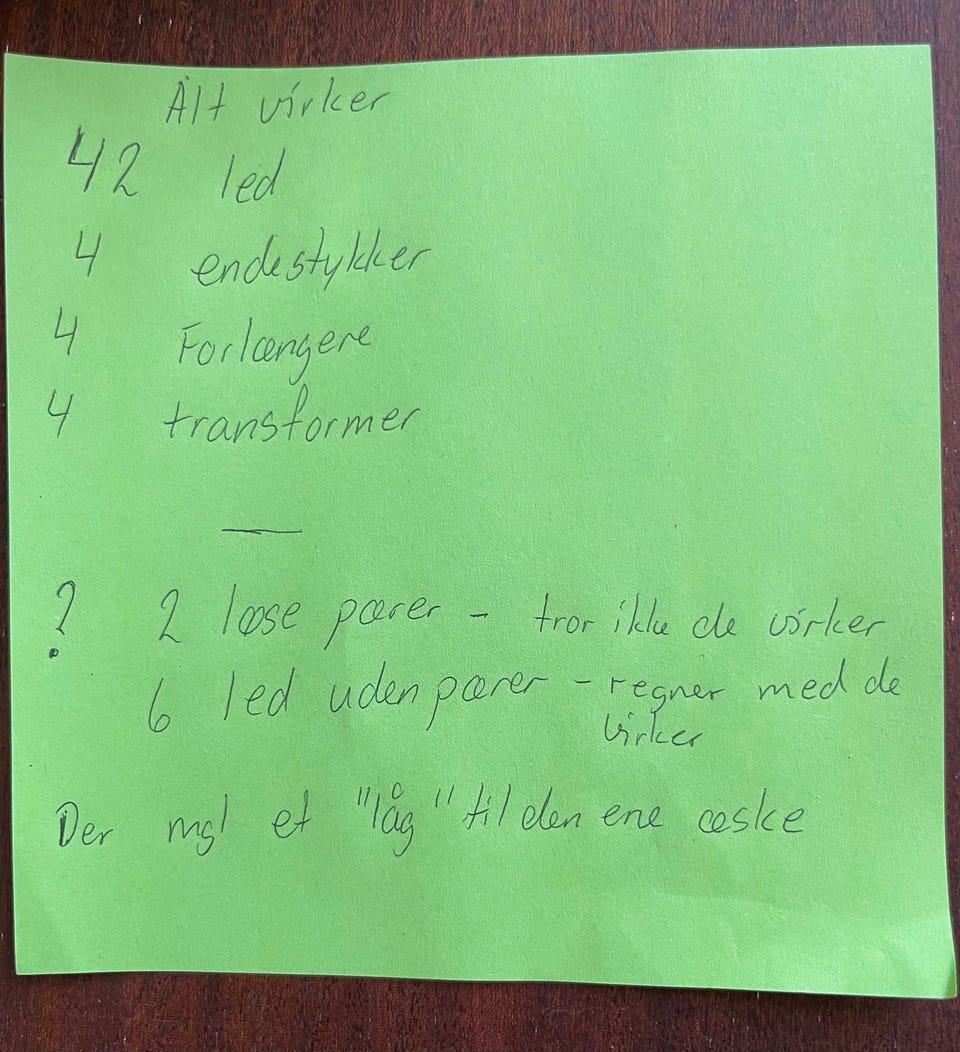 Alt virker
42 led
4 endestykker
4 Forlængere
4 transformer
? 2 løse pærer - tror ikke de virker
6 led uden pærer - regner med de
virker
Der mgl et "låg" til den ene æske